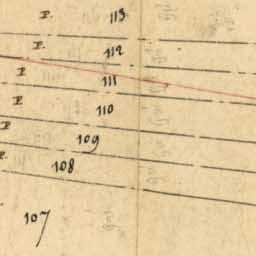 P. 113
P. 112
P 111
P 110
P 109
P. 108
107